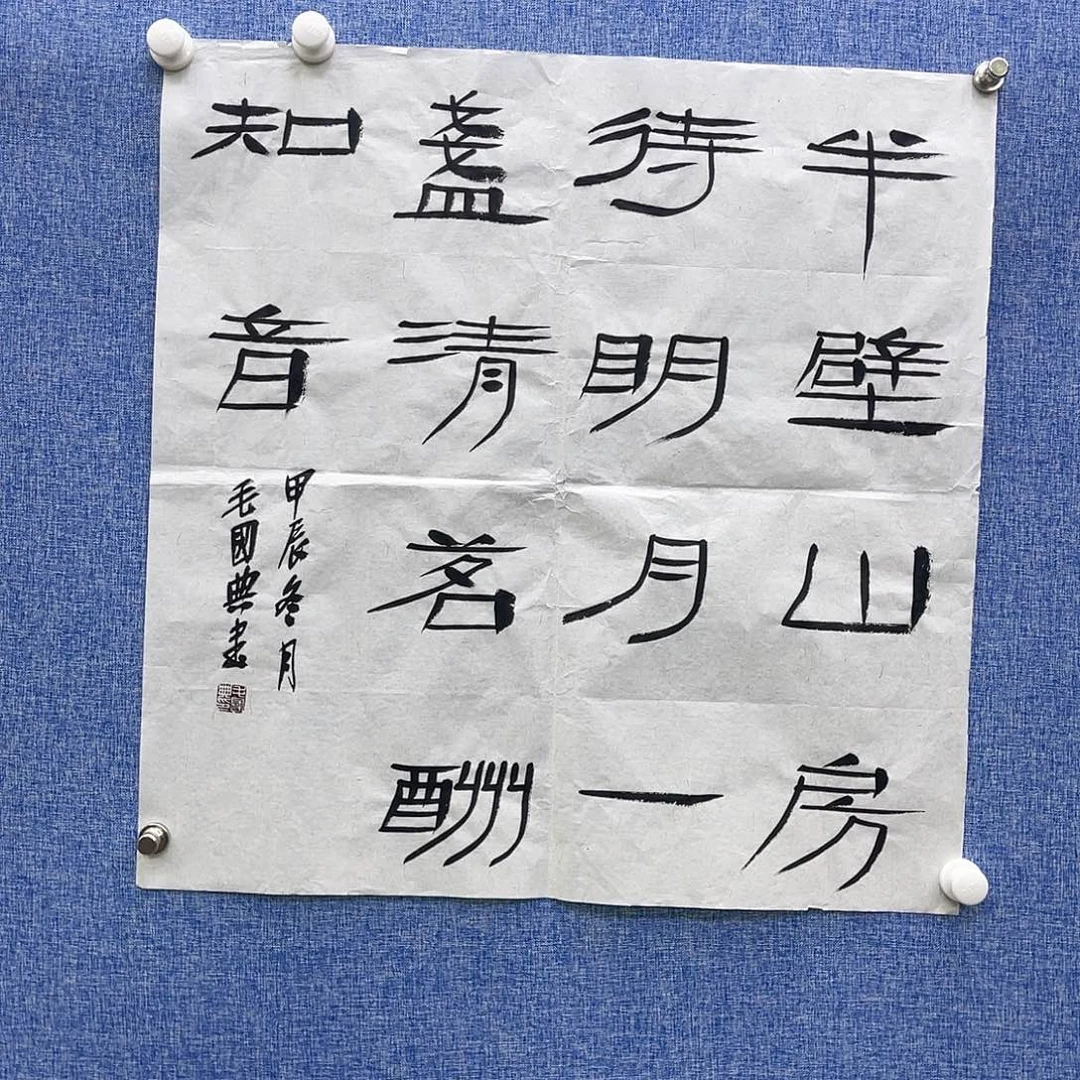 半壁山房
待明月一
盏清茗酬
知音
甲辰冬月
毛國典書